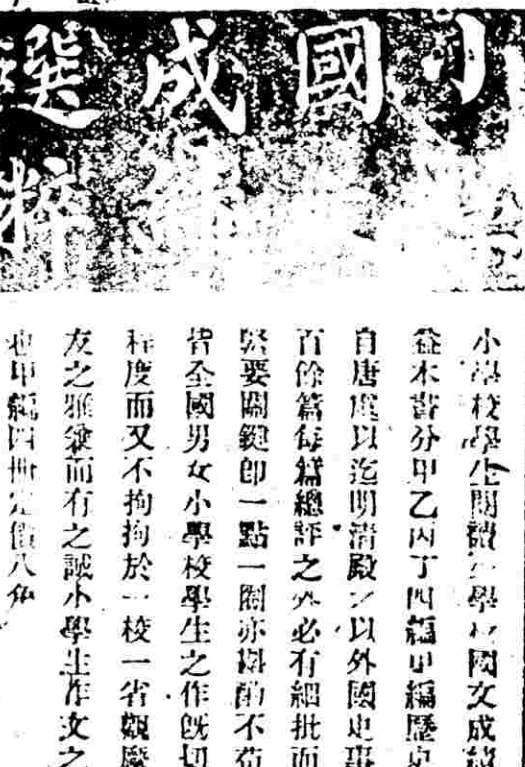 小國成選
粹
小學校學生閱讀學校國文成績
益本書分甲乙丙丁四編甲編歷史
自唐虞以迄明清殿之以外國史事
百餘篇每篇總評之外必有細批而
緊要關鍵即一點一圈亦斟酌不苟
皆全國男女小學校學生之作既切
程度而又不拘拘於一校一省觀摩
友之雅彙而有之誠小學生作文之
也甲編四冊定價八角